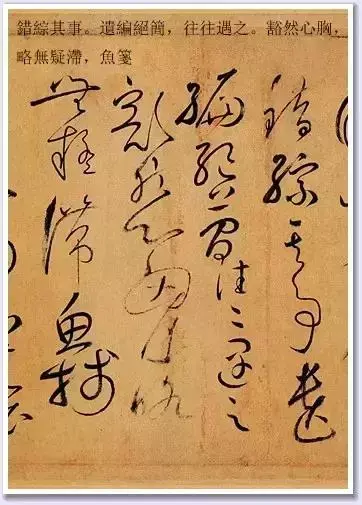 錯綜其事。遺編絕簡，往往遇之。豁然心胸，
略無疑滯，魚箋
錯綜其事遺
編絕簡往〻遇之
豁然心胸略
無疑滯魚箋